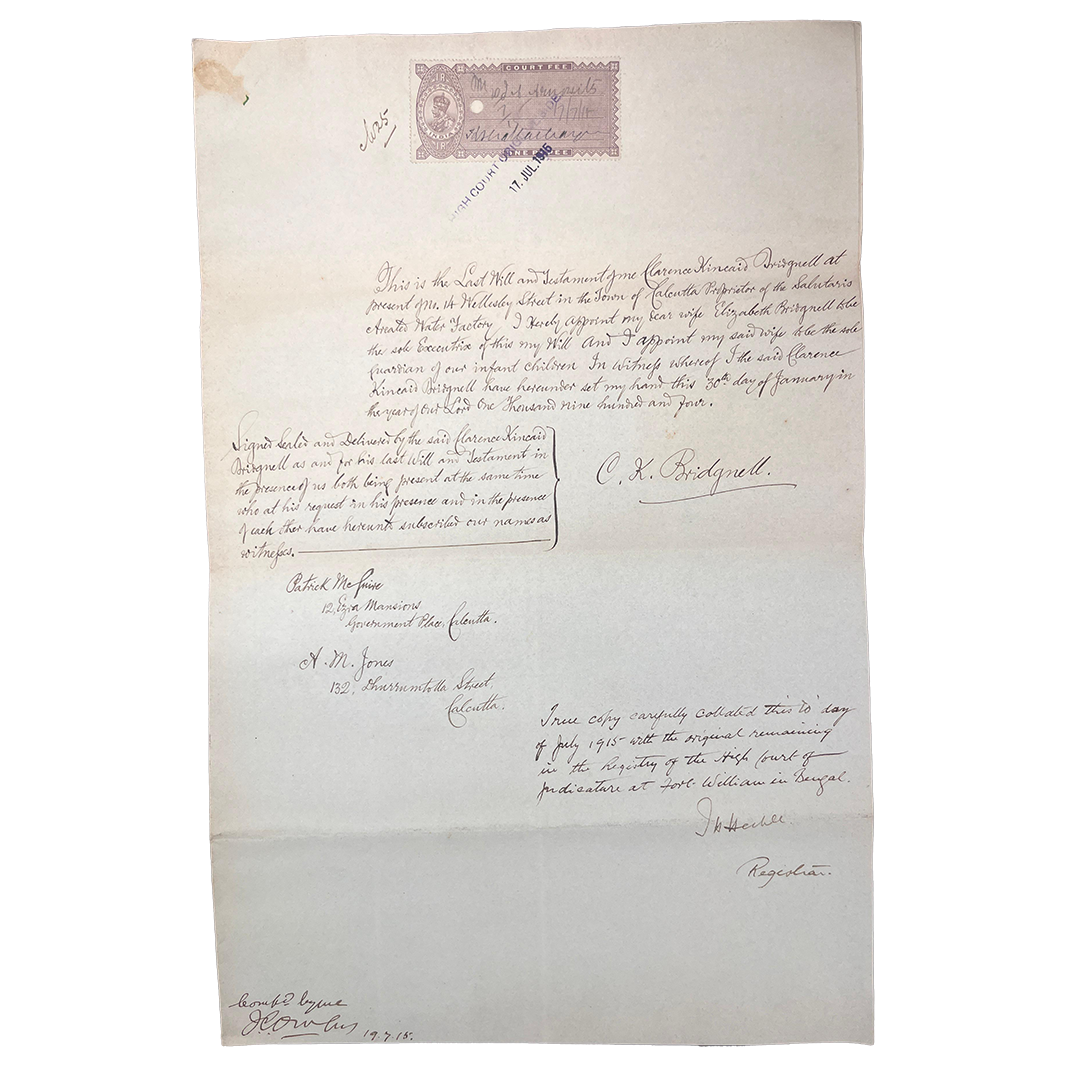 COURT FEE
1R
INDIA
1R
ONE RUPEE
HIGH COURT
17. JUL. 1915
No 25
This is the Last Will and Testament of me Clarence Kincaid Bridgnell at
present of No. 14 Wellesley Street in the Town of Calcutta Proprietor of the Salutaris
Aerated Water Factory I Hereby appoint my dear wife Elizabeth Bridgnell to be
the sole Executrix of this my Will And I appoint my said wife to be the sole
Guardian of our infant children In Witness whereof I the said Clarence
Kincaid Bridgnell have hereunder set my hand this 30th day of January in
the year of Our Lord One Thousand nine hundred and four.
Signed Sealed and Delivered by the said Clarence Kincaid
Bridgnell as and for his last Will and Testament in
the presence of us both being present at the same time
who at his request in his presence and in the presence
of each other have hereunto subscribed our names as
witnesses.
C. K. Bridgnell.
Patrick McGuire
12, Ezra Mansions
Government Place, Calcutta.
A. M. Jones
132, Dhurrumtolla Street,
Calcutta.
True copy carefully collated this day
of July 1915 with the original remaining
in the Registry of the High Court of
Judicature at Fort William in Bengal.
Registrar.
19.7.15.